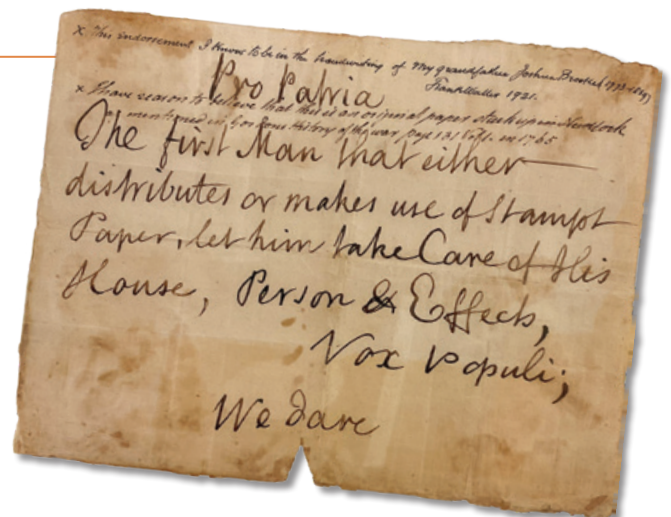 x This indorsement I know to be in the handwriting of my grandfather Joshua
Frank Waller 1921.
Pro Patria
x I have reason to believe that this is an original paper stuck up in
mentioned in Gordons History of the war page 131 Vol 1. in 1765
The first Man that either
distributes or makes use of Stampt
Paper, let him take Care of His
House, Person & Effects,
Vox Populi;
We dare